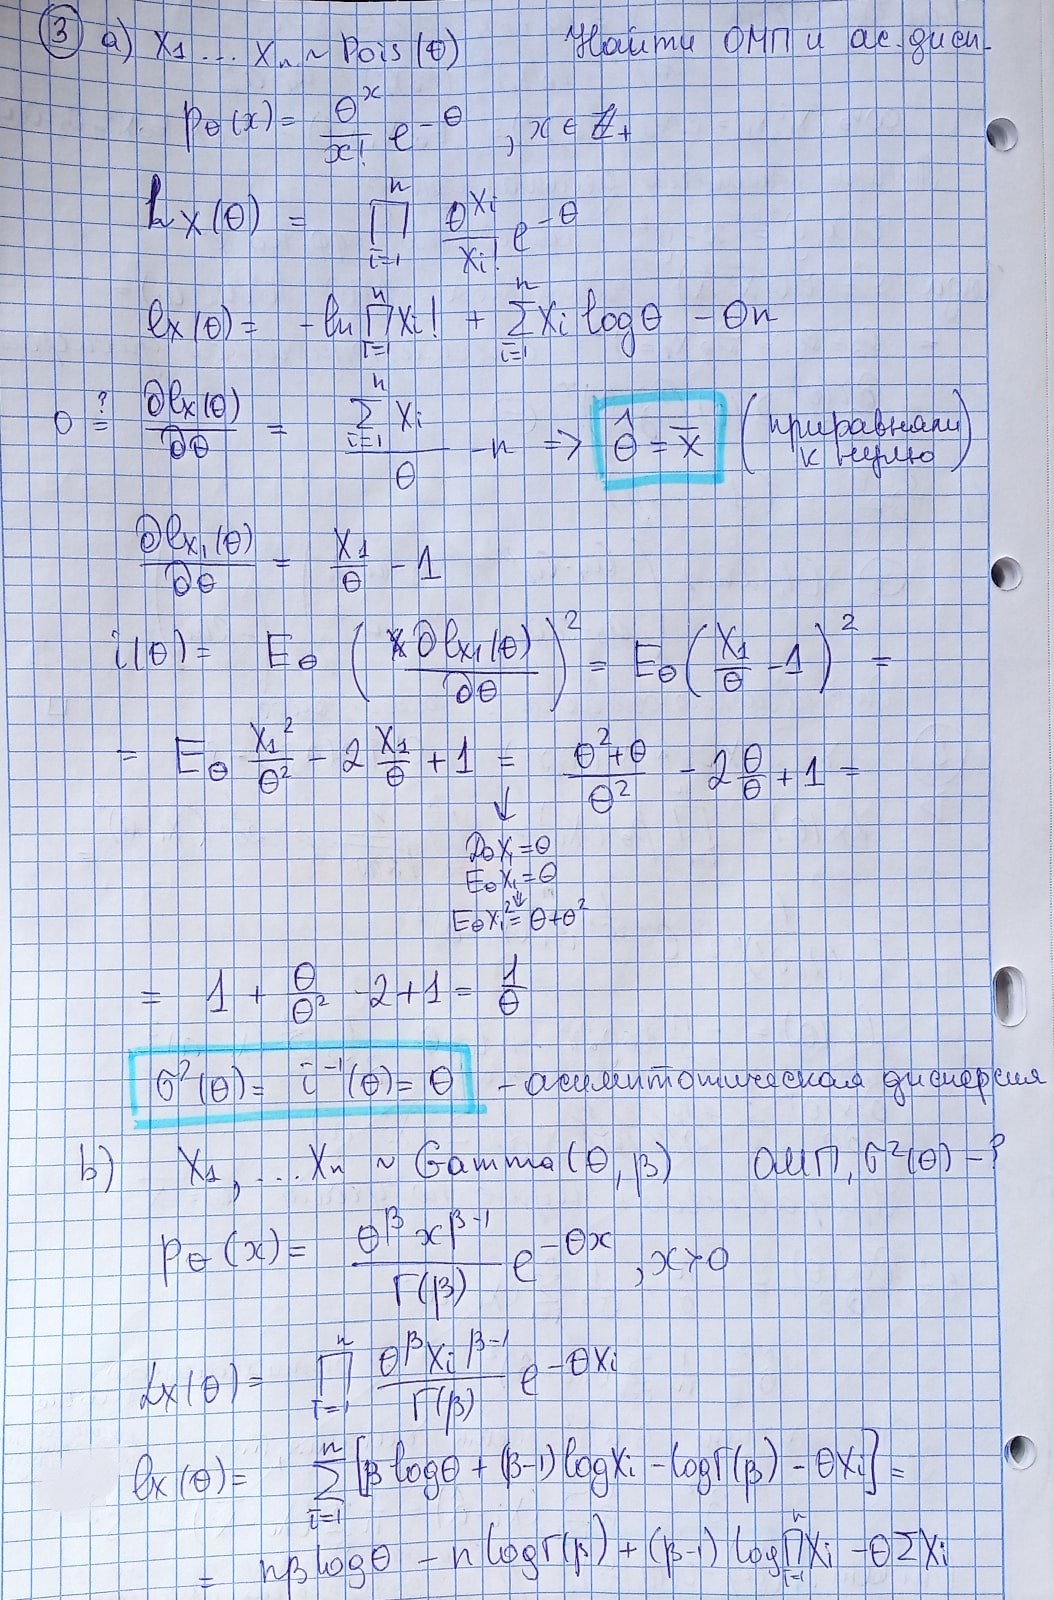 ③ a) X₁ ... Xₙ ~ Pois(θ) Найти ОМП и ас. дисп.
p_θ(x) = θ^x / x! e^{-θ} , x ∈ ℤ₊
L_X(θ) = ∏_{i=1}^{n} θ^{X_i} / X_i! e^{-θ}
l_X(θ) = -ln ∏_{i=1}^{n} X_i! + ∑_{i=1}^{n} X_i log θ - θn
0 ≟ ∂l_X(θ)/∂θ = ∑_{i=1}^{n} X_i / θ - n => θ̂ = X̄ (приравняли к нулю)
∂l_{X₁}(θ)/∂θ = X₁/θ - 1
i(θ) = E_θ (∂l_{X₁}(θ)/∂θ)² = E_θ (X₁/θ - 1)² =
= E_θ X₁²/θ² - 2 X₁/θ + 1 = (θ²+θ)/θ² - 2 θ/θ + 1 =
↓
D_θX₁ = θ
E_θX₁ = θ
↓
E_θX₁² = θ + θ²
= 1 + θ/θ² - 2 + 1 = 1/θ
σ²(θ) = i⁻¹(θ) = θ - асимптотическая дисперсия
b) X₁, ... Xₙ ~ Gamma(θ, β) ОМП, σ²(θ) - ?
p_θ(x) = θ^β x^{β-1} / Γ(β) e^{-θx} , x > 0
L_X(θ) = ∏_{i=1}^{n} θ^β X_i^{β-1} / Γ(β) e^{-θX_i}
l_X(θ) = ∑_{i=1}^{n} [β log θ + (β-1) log X_i - log Γ(β) - θX_i] =
= nβ log θ - n log Γ(β) + (β-1) log ∏_{i=1}^{n} X_i - θ ∑ X_i